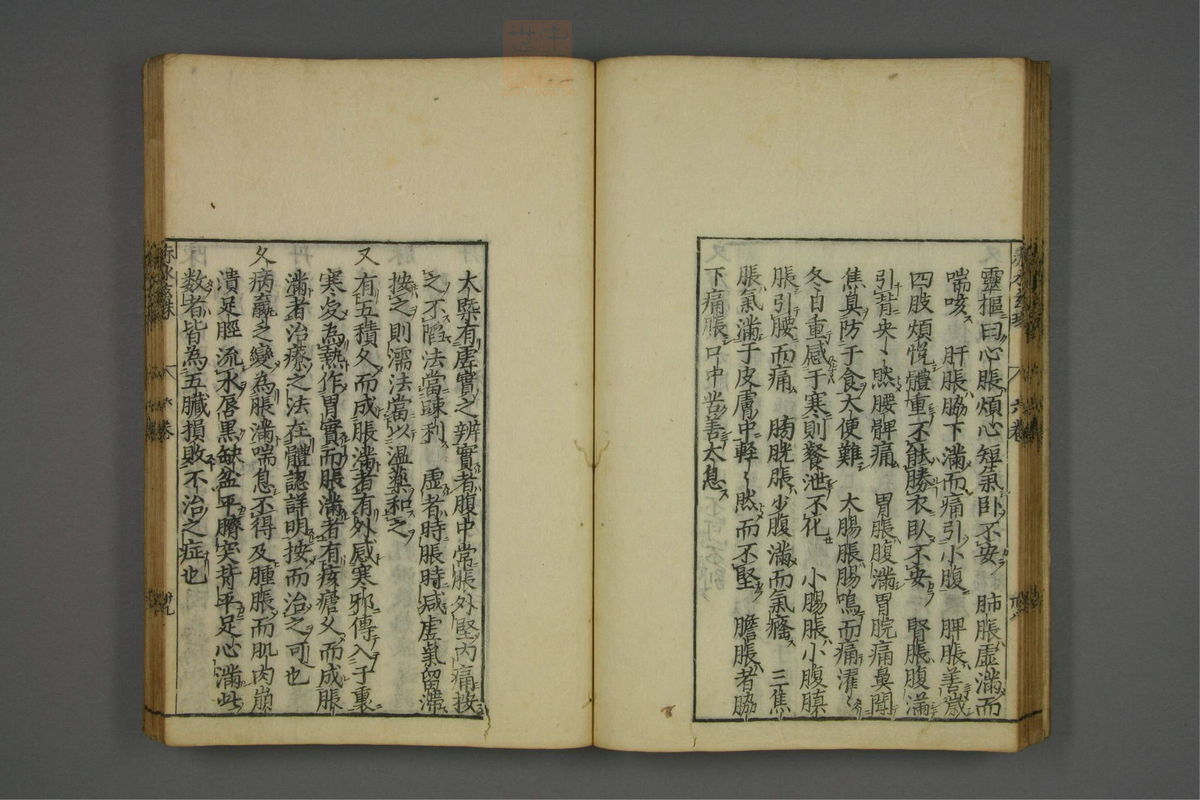 靈樞曰心脹煩心短氣卧不安　肺脹虛滿而
喘咳　肝脹脇下滿而痛引小腹　脾脹善噦
四肢煩悗體重不能勝衣臥不安　腎脹腹滿
引背央〻然腰髀痛　胃脹腹滿胃脘痛鼻聞
焦臭防于食大便難　大腸脹腸鳴而痛濯〻
冬日重感于寒則飡泄不化　小腸脹小腹䐜
脹引腰而痛　膀胱脹少腹滿而氣癃　三焦
脹氣滿于皮膚中軽〻然而不堅　膽脹者脇
下痛脹口中苦善太息
大槩有虛實之辨實者腹中常脹外堅內痛按
之不陷法當疎利　虛者時脹時减虛氣留滯
按之則濡法當以温藥和之
又有五積久而成脹滿者有外感寒邪傳入于裏
寒变為熱作胃實而脹滿者有痎瘧久而成脹
滿者治療之法在體認詳明按而治之可也
久病羸之變為脹滿喘息不得及腫脹而肌肉崩
潰足脛流水唇黑缺盆平臍突背平足心滿此
数者皆為五臟損敗不治之症也
六卷